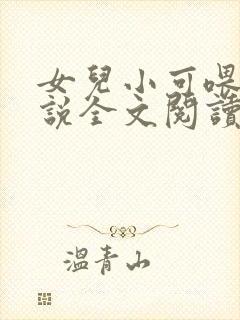 女兒小可喂
說全文閱讀
溫青山